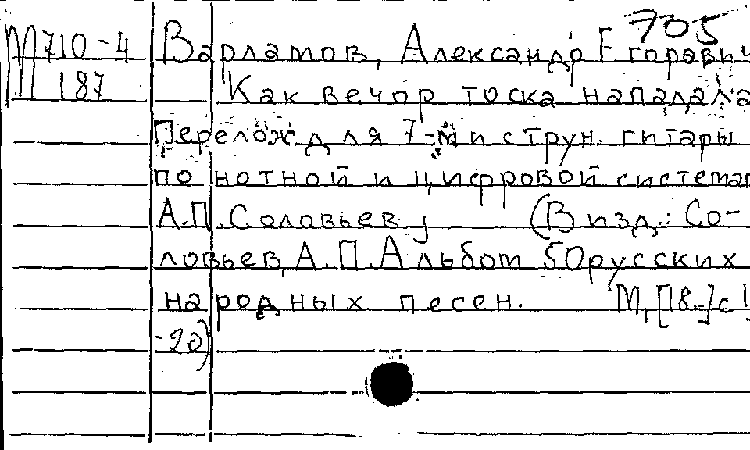 705
М710-4 Варламов, Александр Егорович
М187 Как вечор тоска нападала
Перелож. для 7-ми струн. гитары
по нотной и цифровой системам
А.П. Соловьев, (В изд.: Со-
ловьев, А.П. Альбом 50 русских
народных песен. М, [18-] с 1
-20)